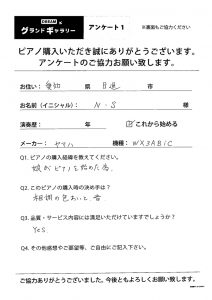 DREAM×
グランドギャラリー
アンケート1
※裏面もご協力ください
ピアノ購入いただき誠にありがとうございます。
アンケートのご協力お願い致します。
お住い: 愛知 県 日進 市
お名前(イニシャル): N・S 様
演奏歴: 年 ☑これから始める
メーカー: ヤマハ 機種: WX3ABiC
Q1. ピアノの購入経緯を教えてください。
娘がピアノを始めた為。
Q2. このピアノの購入時の決め手は?
木目調の色合いと音
Q3. 品質・サービス内容には満足いただけていますでしょうか?
Yes
Q4. その他感想やご要望等、ご自由にご記入下さい。
ご協力ありがとうございました。今後ともよろしくお願い致します。